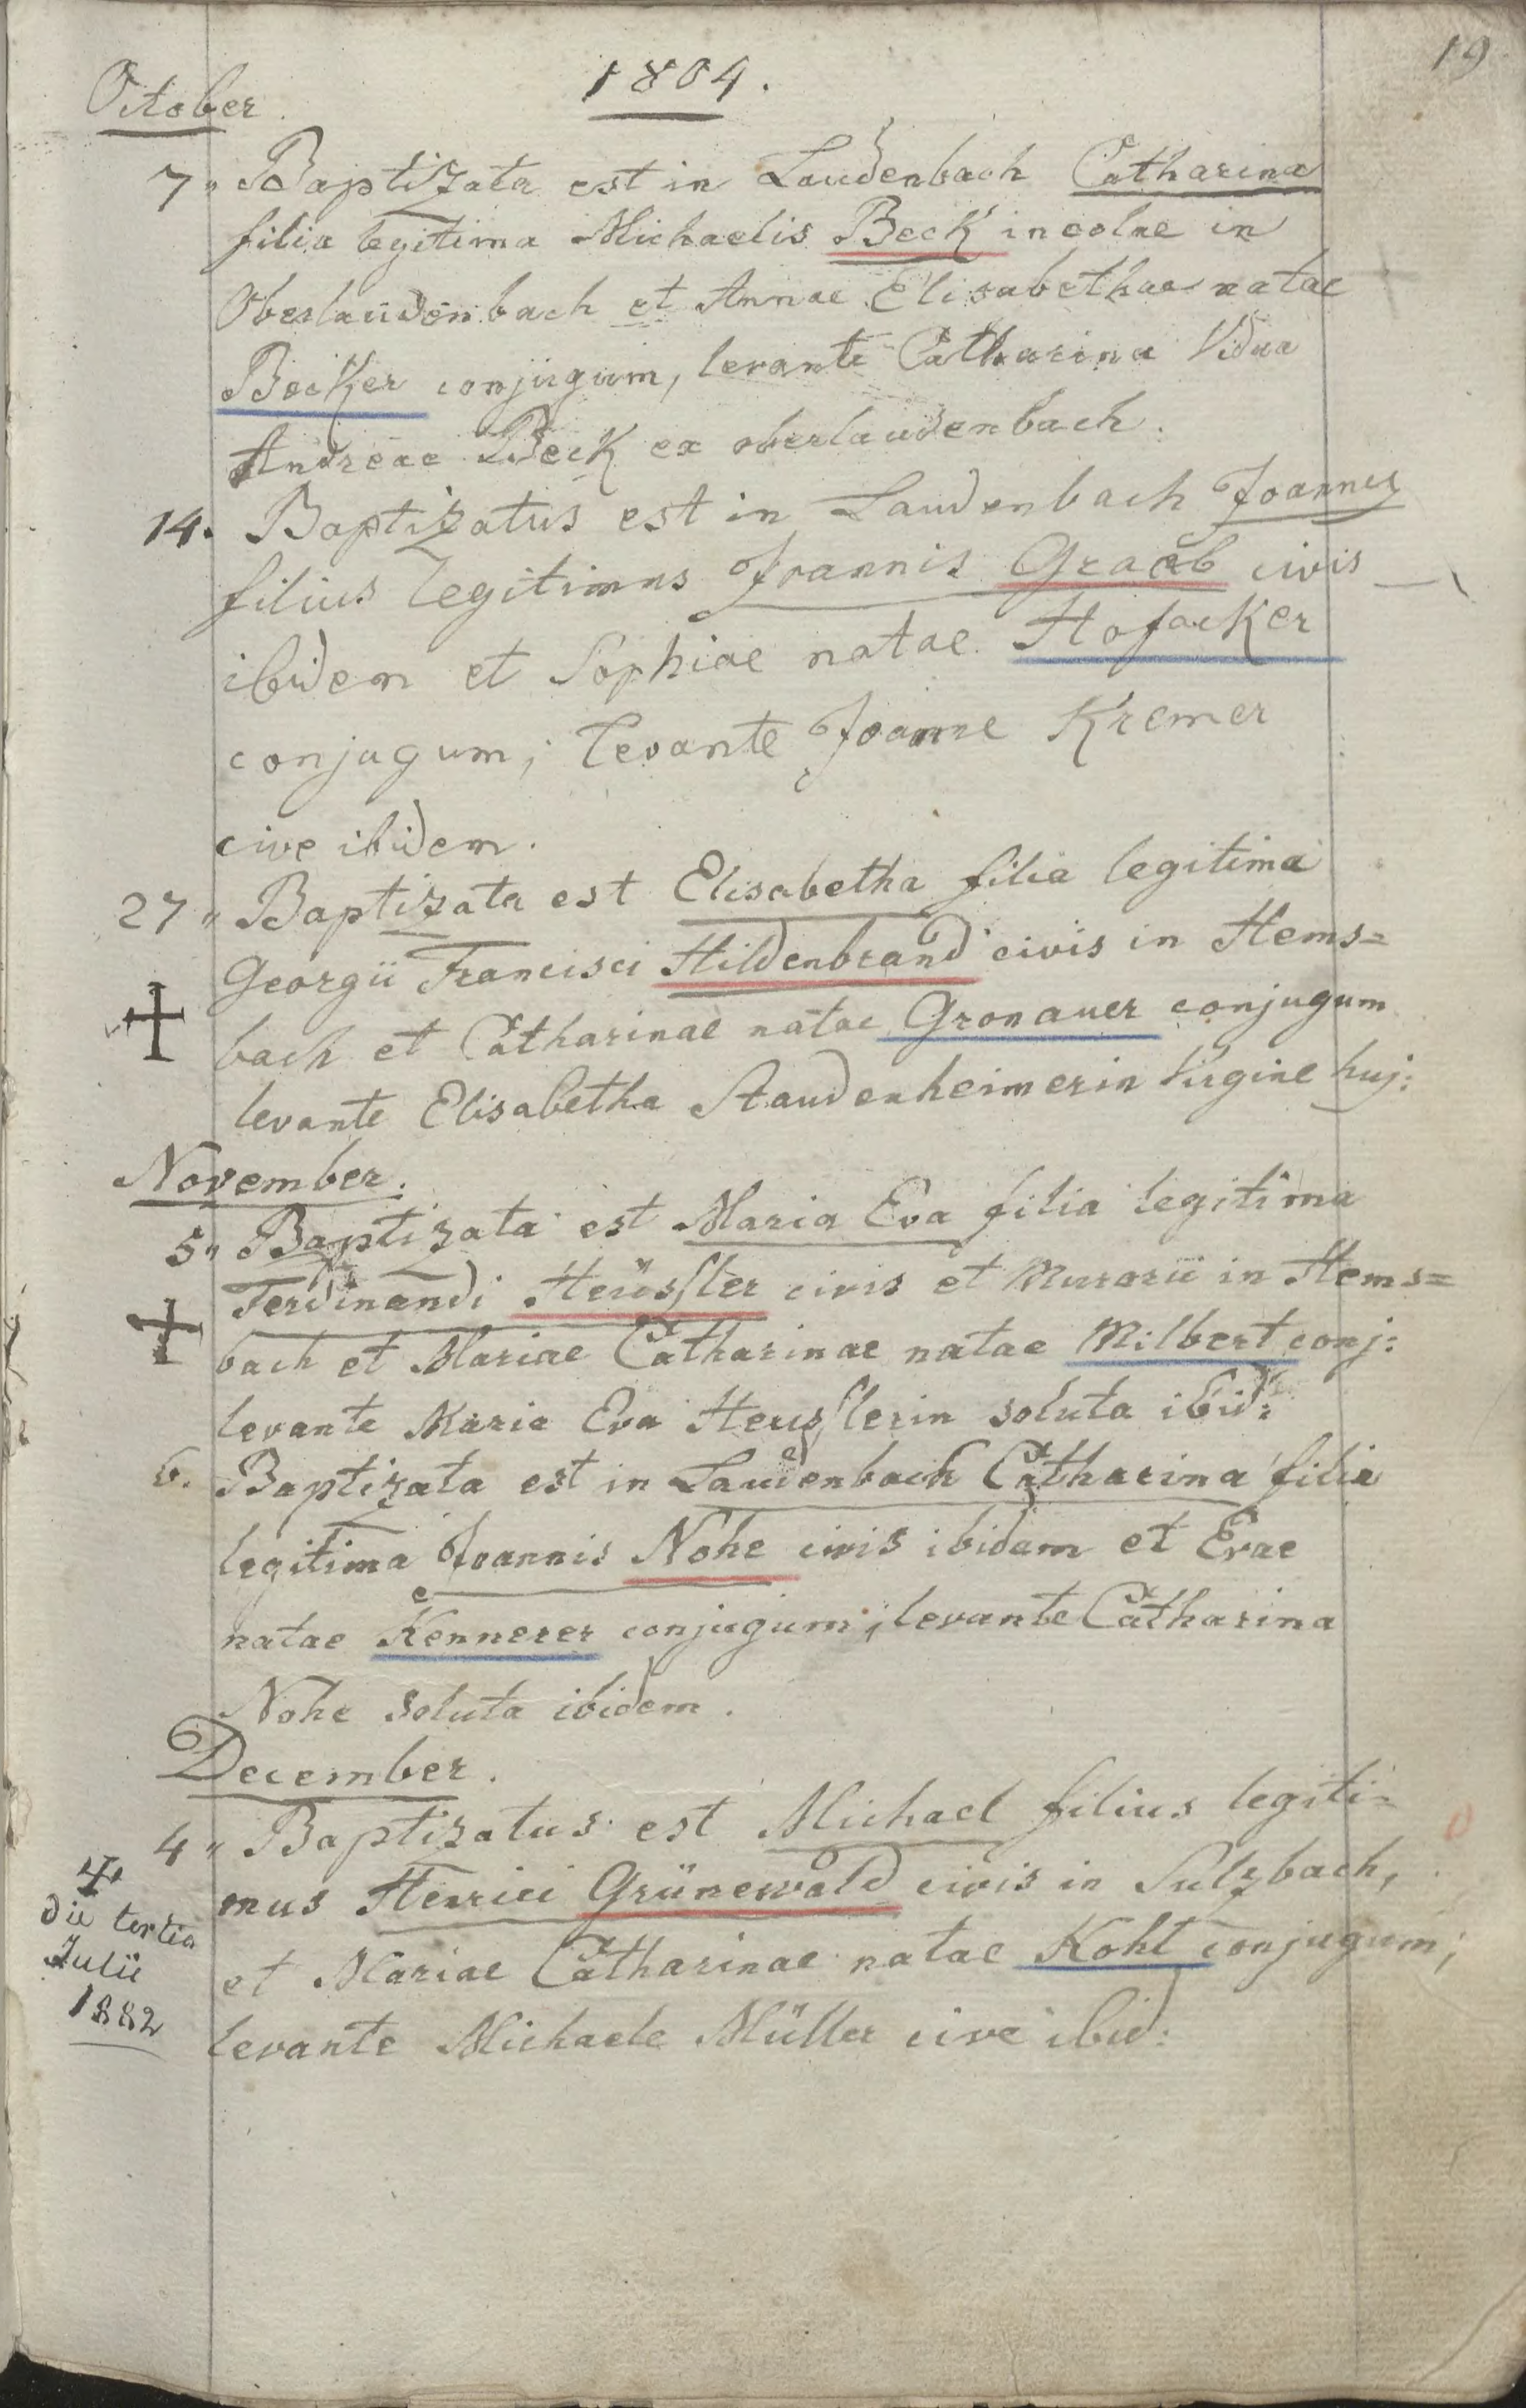 19
1804.
October.
7" Baptizata est in Laudenbach Catharina
filia legitima Michaelis Beck incolae in
Oberlaudenbach et Annae Elisabethae natae
Becker conjugum, levante Catharina Vidua
Andreae Beck ex oberlaudenbach.
14. Baptizatus est in Laudenbach Joannes
filius legitimus Joannis Graeb civis
ibidem et Sophiae natae Hofacker
conjugum; levante Joanne Kremer
cive ibidem.
27" Baptizata est Elisabetha filia legitima
Georgii Francisci Hildenbrand civis in Hems=
bach et Catharinae natae Gronauer conjugum
levante Elisabetha Staudenheimerin Virgine huj:
November.
5" Baptizata est Maria Eva filia legitima
Ferdinandi Heüsller civis et Murarii in Hems=
bach et Mariae Catharinae natae Milbert conj:
levante Maria Eva Heusslerin soluta ibid:
6. Baptizata est in Laudenbach Catharina filia
legitima Joannis Nohe civis ibidem et Evae
natae Kennerer conjugum; levante Catharina
Nohe soluta ibidem.
December.
4" Baptizatus est Michael filius legiti=
mus Henrici Grünewald civis in Sulzbach,
et Mariae Catharinae natae Koht conjugum;
levante Michaele Müller cive ibid:
die tertia
Julii
1882